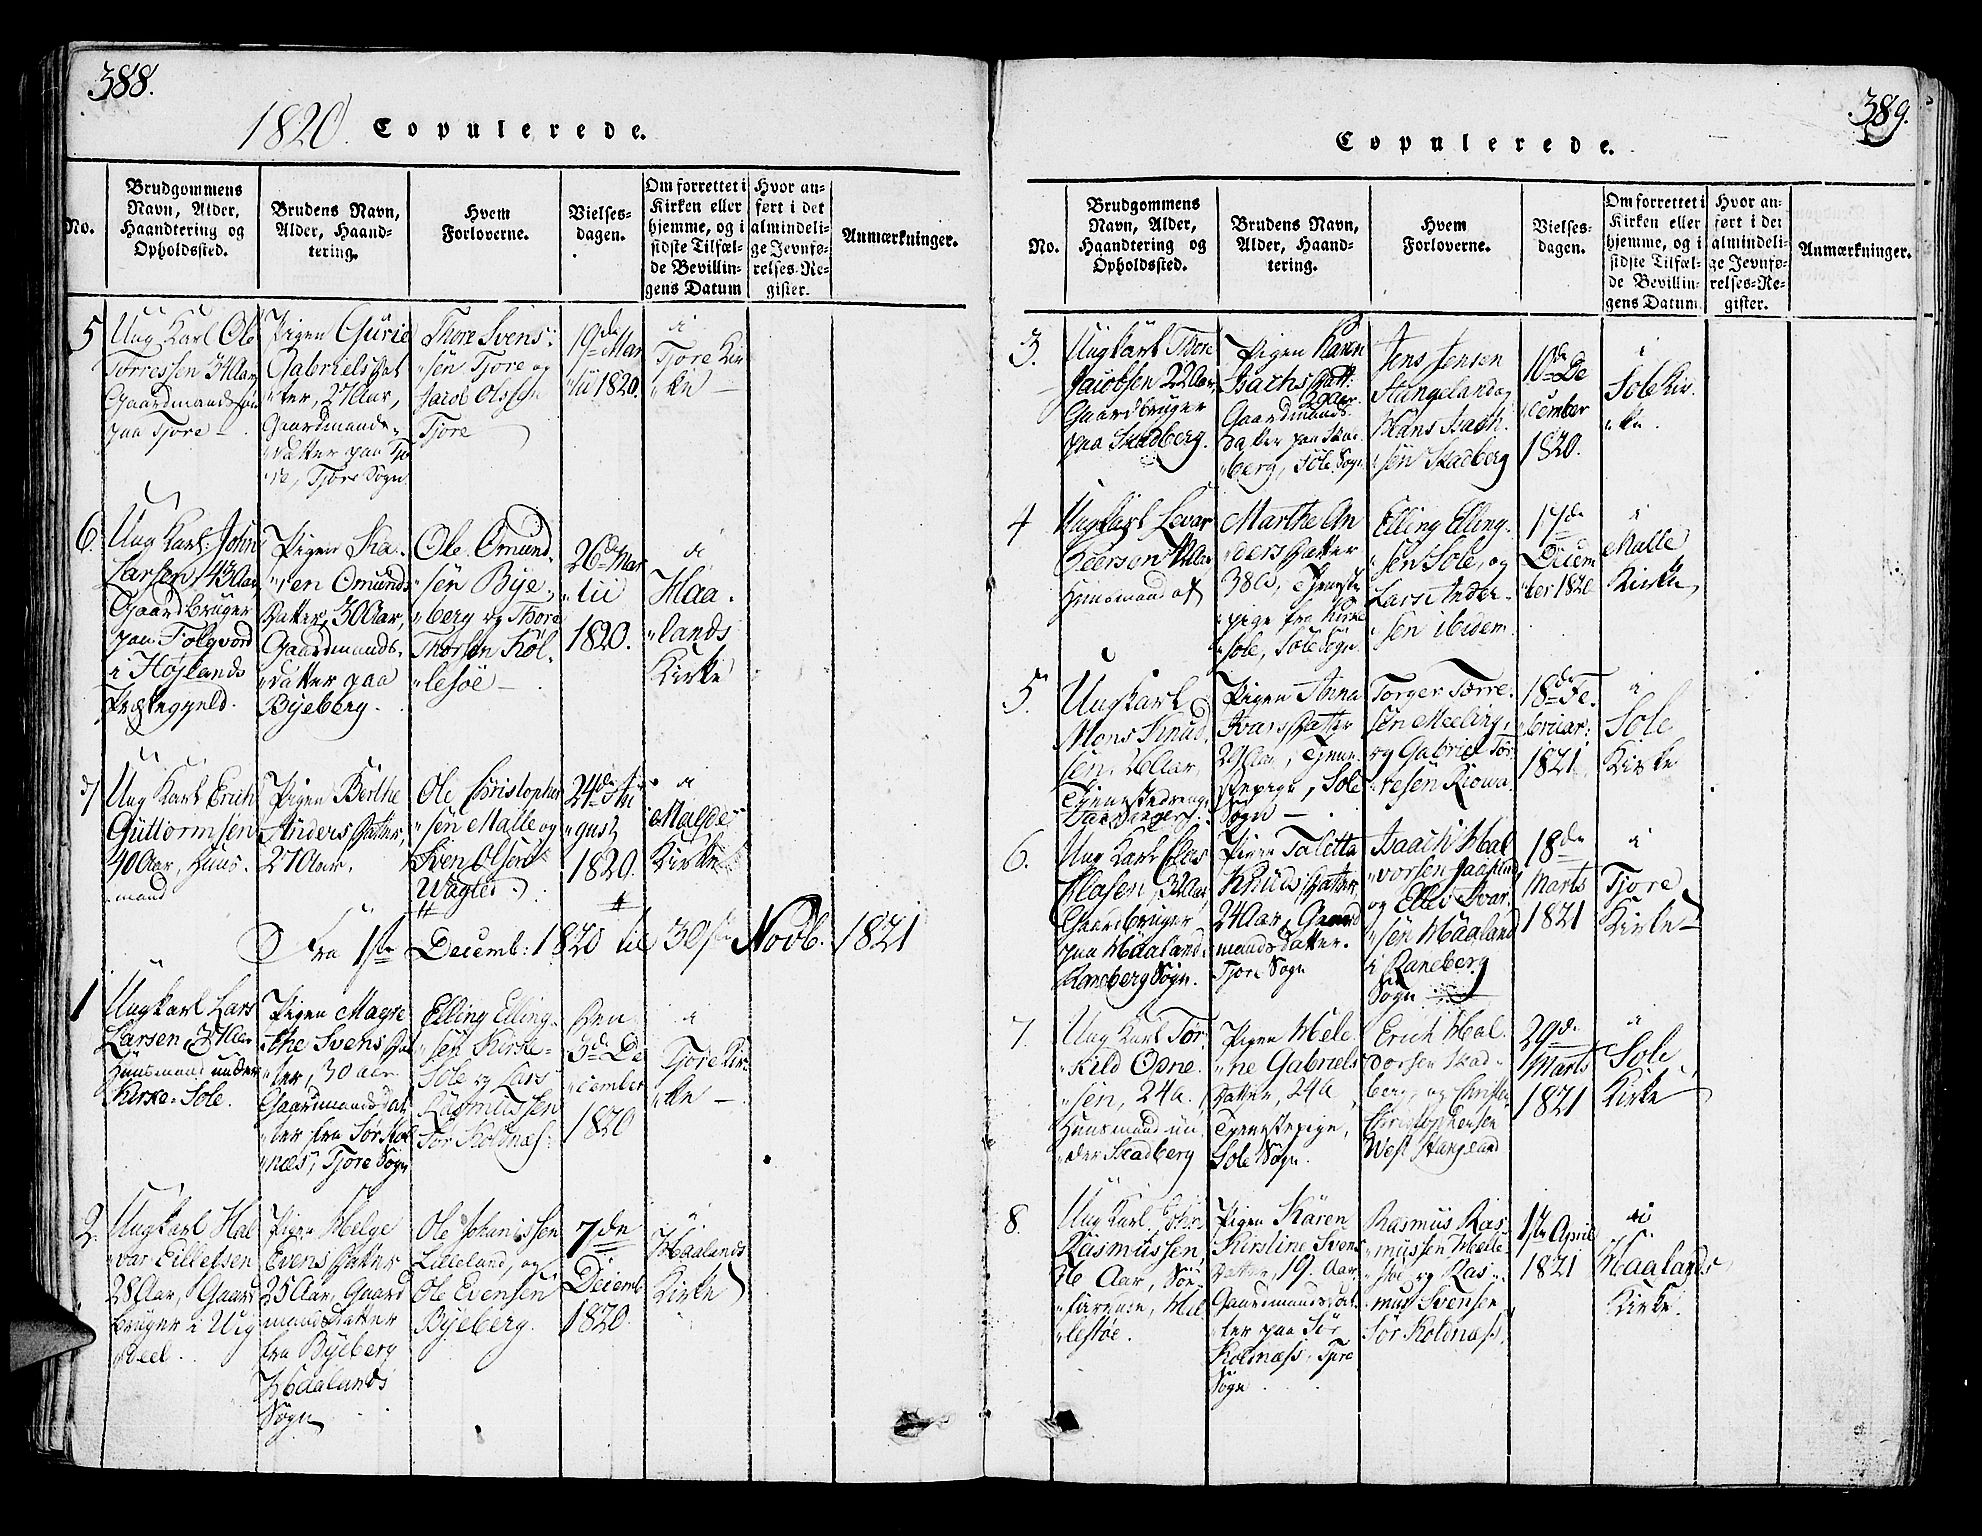 388.
1820. Copulerede.
No.
Brudgommens
Navn, Alder,
Haandtering og
Opholdssted.
Brudens Navn,
Alder, Haand-
tering.
Hvem
Forloverne.
Vielses-
dagen.
Om forrettet i
Kirken eller
hjemme, og i
sidste Tilfæl-
de Bevillin-
gens Datum
Hvor an-
ført i det
almindeli-
ge Jevnfø-
relses-Re-
gister.
Anmærkninger.
5
Ung Karl Ole
Torressen 34 Aar
Gaardmandssøn
paa Tjore
Pigen Gurie
Gabrielsdat
ter, 27 Aar,
Gaardmands-
datter paa Tjo
re, Tjore Sogn
Thore Svens-
sen Tjore og
Jacob Olssen
Tjore
19de Mar
tii 1820.
i
Tjore Kir
ke
6.
Ung Karl John
Larsen, 43 Aar
Gaardbruger
paa Folgvord
i Højlands
Præstegjeld.
Pigen Ka-
ren Omunds
Datter, 30 Aar,
Gaardmands-
datter paa
Byeberg.
Ole Omund-
sen Bye-
berg og Thore
Thorsen Kol-
lesøe
26de Mar
tii
1820.
i
Haa-
lands
Kirke
7
Ung Karl Erich
Guttormsen
40 Aar, Huus-
mand
Pigen Berthe
Anders Datter,
27 Aar.
Ole Christopher
sen Malle og
Sven Olsen
24de Au
gust
1820.
i
Kirke
Fra 1ste Decemb: 1820 til 30te Novb. 1821
1
Ungkarl Lars
Larsen, 37 Aar
Huusmand under
Kirke-Sole.
Pigen Magre
the Svens Dat
ter, 30 Aar
Gaardmands Dat
ter fra Sør Kol
næs, Tjore Sogn
Elling Elling-
sen Kirke-
Sole og Lars
Rasmussen
Sør Kolnæs
Den
3de De
cember
1820
i
Tjore Kir-
ke
2.
Ungkarl Hal
var Eilletsen
28 Aar, Gaard
bruger i Ug
deel.
Pigen Helge
Evens Datter
25 Aar, Gaard
mands Datter
fra Byeberg
Haalands
Sogn
Ole Johanissen
Lilleland, og
Ole Evensen
Byeberg.
7de
Decemb
1820.
i
Haalands
Kirke
389.
Copulerede.
No.
Brudgommens
Navn, Alder,
Haandtering og
Opholdssted.
Brudens Navn,
Alder, Haand-
tering.
Hvem
Forloverne.
Vielses-
dagen.
Om forrettet i
Kirken eller
hjemme, og i
sidste Tilfæl-
de Bevillin-
gens Datum.
Hvor an-
ført i det
almindeli-
ge Jevnfø-
relses-Re-
gister.
Anmærkninger.
3.
Ungkarl Thore
Jacobsen 22 Aar,
Gaardbruger
paa Skadberg.
Pigen Karen
Isachs Datt:
29 Aar.
Gaardmands
datter paa Skad
berg, Sole Sogn
Jens Jensen
Stangeland og
Hans Isach-
sen Skadberg
10de De
cember
1820.
i
Sole Kir-
ke.
4
Ungkarl
Huusmand af
Marthe An
ders Datter
38 a, Tjeneste
pige fra Kirke
Sole, Sole Sogn.
Elling Elling-
sen Sole, og
Lars Ander-
sen ibidem.
17de
Decem
ber 1820
i
Malle
Kirke
5.
Ungkarl
Mons Knud
sen, 26 Aar,
Tjenestedreng
Pigen Anna
Ivars Datter
29 Aar, Tjene
stepige, Sole
Sogn
Torger Torre-
sen Meeling,
og Gabriel Tor
resen
18de Fe-
bruar:
1821
i
Sole
Kirke
6.
Ung Karl Clas
Clasen, 32 Aar,
Gaardbruger
paa Haaland,
Raneberg Sogn.
Pigen Taletta
Knuds Datter
24 Aar, Gaard
mandsdatter.
Tjore Sogn
Isach Hal
vorsen
og Ellev Ivar
sen Haaland
i Raneberg
Sogn
18de
Marts
1821
i
Tjore
Kirke
7.
Ung Karl Tor-
kild Odne-
sen, 24 a.
Huusmand un
der Skadberg
Pigen Hele-
ne Gabriels
Datter, 24 a
Tjenestepige,
Sole Sogn.
Erich Hal
vorsen Skad
berg, og Christen
Christophersen
West Stangeland
29de
Marts
1821
i
Sole
Kirke
8
Ung Karl John
Rasmussen
Aar,
Pigen Karen
Kirstine Svens
Datter, 19 Aar,
Gaardmands Dat
ter paa Sør
Kolnæss, Tjore
Sogn
Rasmus Ras
mussen
og Ras-
mus Svensen
Sør Kolnæss.
1ste April
1821
i
Haalands
Kirke.